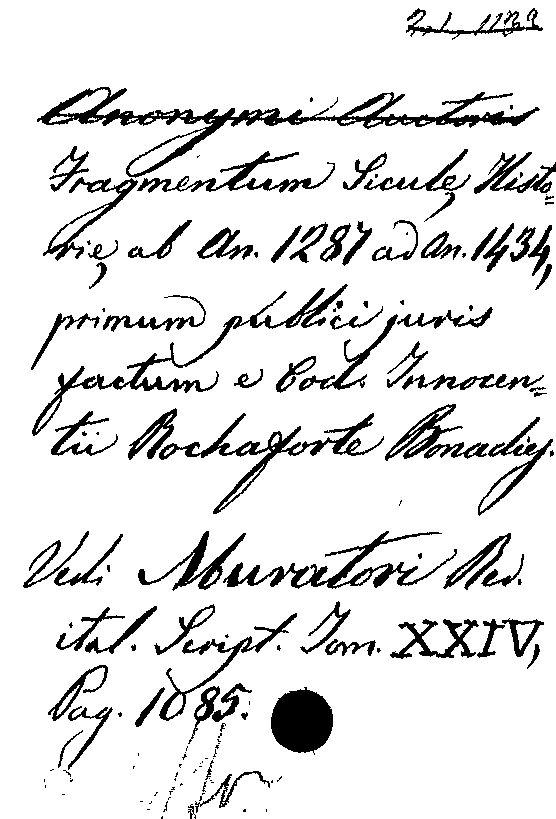 2, 1, 1129
Anonymi Auctoris
Fragmentum Siculę Histo=
rię, ab An. 1287 ad An. 1434,
primum publici juris
factum e Cod. Innocen=
tii Rochaforte Bonadiej.
Vedi Muratori Rer.
ital. Script. Tom. XXIV,
Pag. 1085.